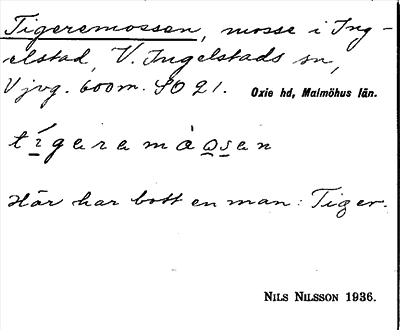 Tigeremossen, mosse i Ing-
elstad, V. Ingelstads sn,
V jvg. 600 m. SO 21. Oxie hd, Malmöhus län.
tígaramàosan
Här har bott en man: Tiger.
NILS NILSSON 1936.